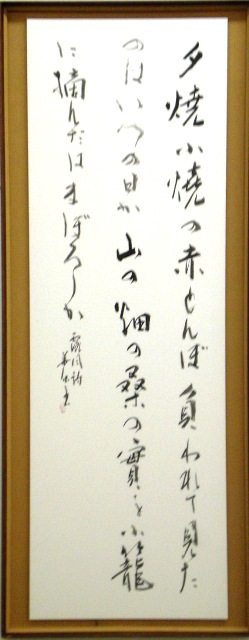 夕焼小焼の赤とんぼ負われて見た
のはいつの日か山の畑の桑の實を小籠
に摘んだはまぼろしか
露風詩